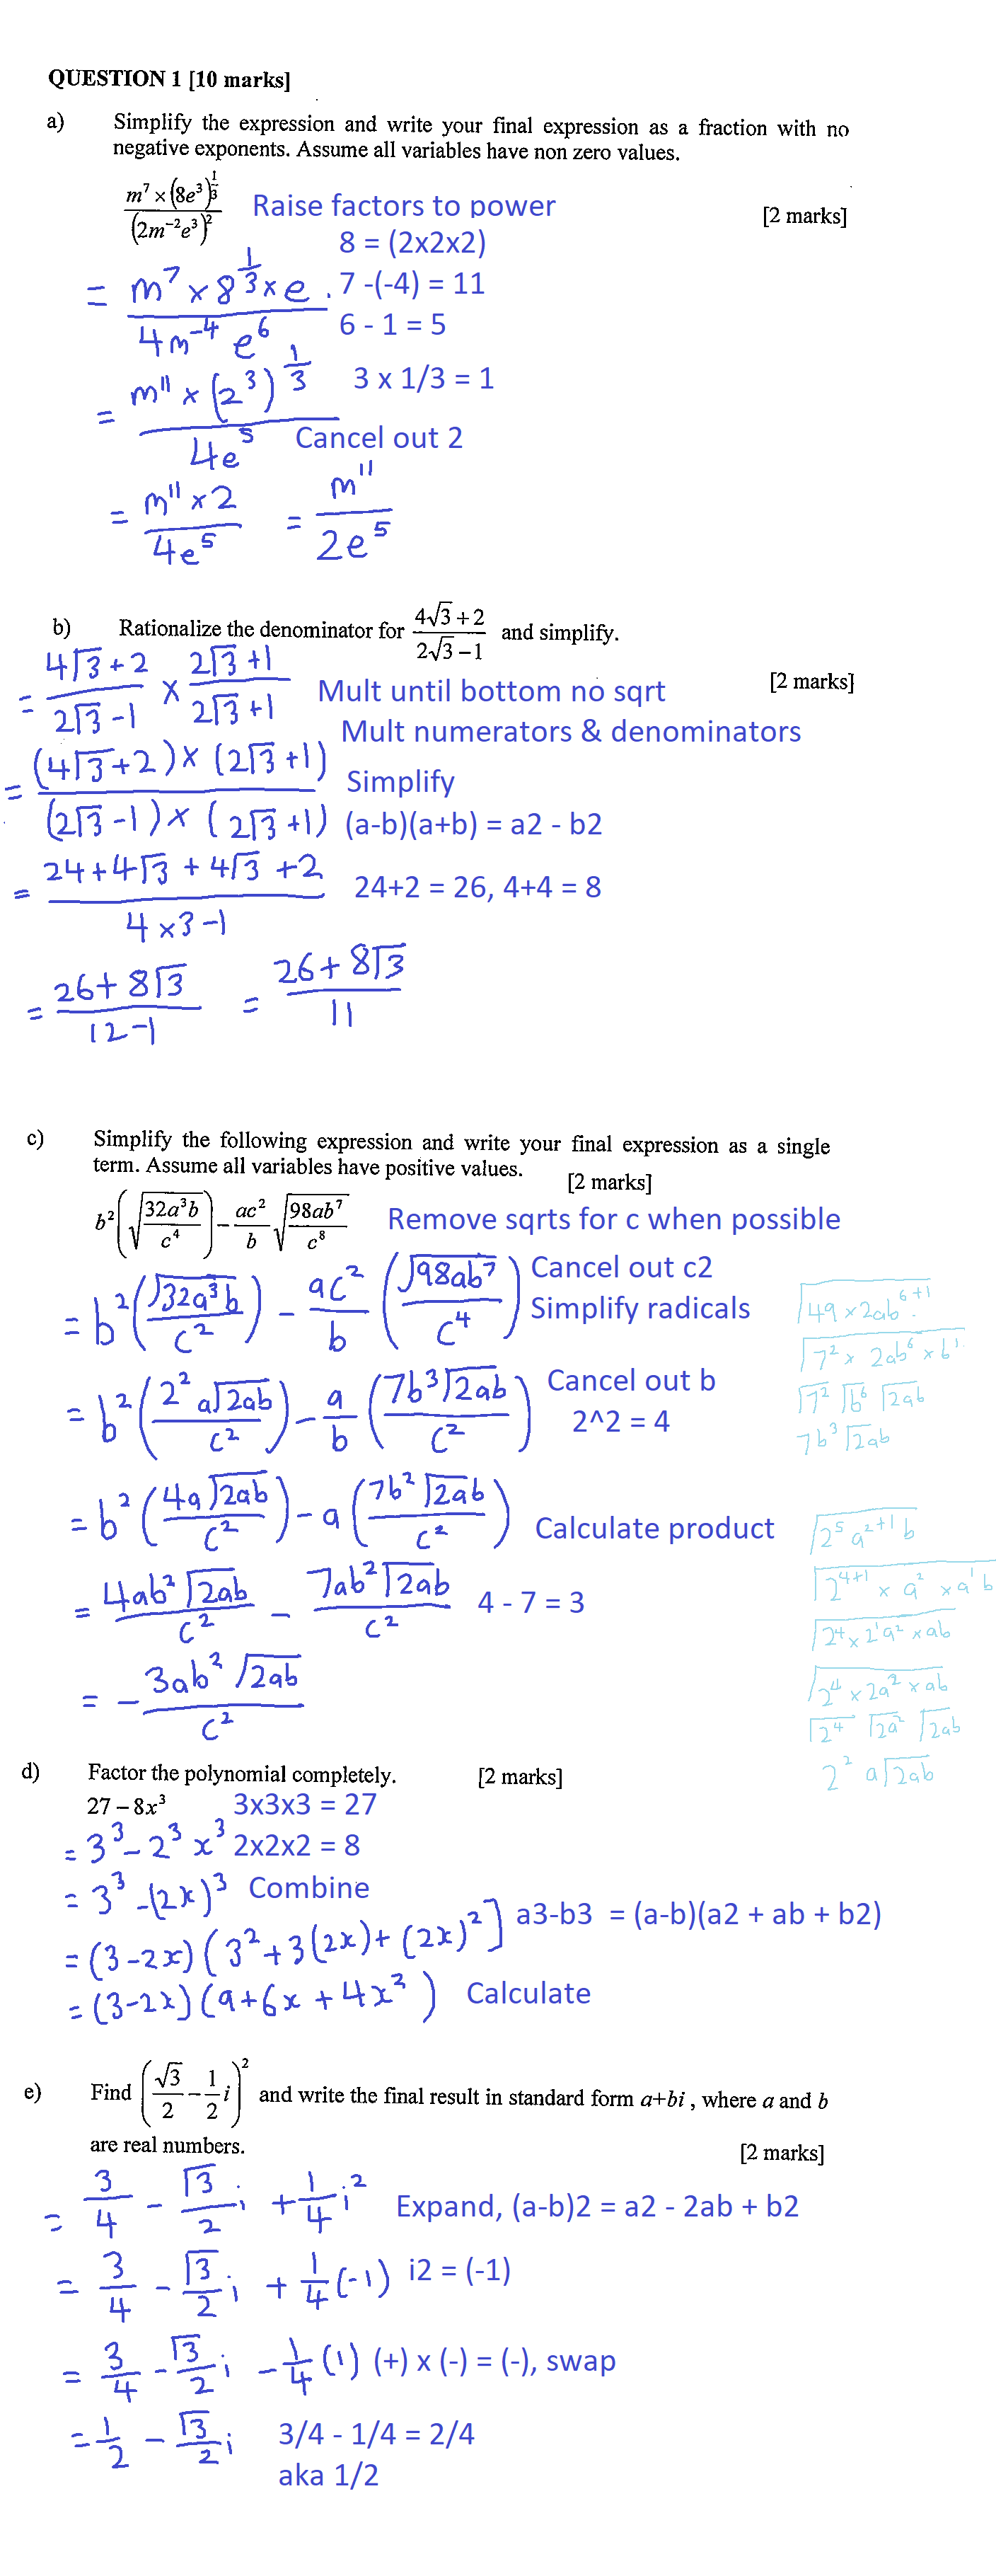 QUESTION 1 [10 marks]
a) Simplify the expression and write your final expression as a fraction with no
negative exponents. Assume all variables have non zero values.
(m⁷ × (8e³)^(1/3)) / (2m⁻²e³)² Raise factors to power [2 marks]
8 = (2x2x2)
= (m⁷ × 8^(1/3) × e) / (4m⁻⁴ e⁶) . 7 -(-4) = 11
6 - 1 = 5
= (m¹¹ × (2³)^(1/3)) / (4e⁵) 3 x 1/3 = 1
Cancel out 2
= (m¹¹ × 2) / (4e⁵) = m¹¹ / (2e⁵)
b) Rationalize the denominator for (4√3 + 2) / (2√3 − 1) and simplify.
[2 marks]
= (4√3 + 2) / (2√3 − 1) × (2√3 + 1) / (2√3 + 1) Mult until bottom no sqrt
Mult numerators & denominators
= ((4√3 + 2) × (2√3 + 1)) / ((2√3 − 1) × (2√3 + 1)) Simplify
(a-b)(a+b) = a2 - b2
= (24 + 4√3 + 4√3 + 2) / (4 × 3 − 1) 24+2 = 26, 4+4 = 8
= (26 + 8√3) / (12 − 1) = (26 + 8√3) / 11
c) Simplify the following expression and write your final expression as a single
term. Assume all variables have positive values. [2 marks]
b²(√(32a³b / c⁴)) − (ac² / b) √(98ab⁷ / c⁸) Remove sqrts for c when possible
= b²(√(32a³b) / c²) − (ac² / b) (√(98ab⁷) / c⁴) Cancel out c2
Simplify radicals
= b²(2² a√(2ab) / c²) − (a / b) (7b³√(2ab) / c²) Cancel out b
2^2 = 4
= b²(4a√(2ab) / c²) − a (7b²√(2ab) / c²) Calculate product
= 4ab²√(2ab) / c² − 7ab²√(2ab) / c² 4 - 7 = 3
= − 3ab²√(2ab) / c²
√(49 × 2ab^(6+1))
√(7² × 2ab⁶ × b¹)
√7² √b⁶ √2ab
7b³√2ab
√(2⁵ a^(2+1) b)
√(2^(4+1) × a² × a¹b)
√(2⁴ × 2¹a² × ab)
√(2⁴ × 2a² × ab)
√2⁴ √2a² √2ab
2² a√2ab
d) Factor the polynomial completely. [2 marks]
27 − 8x³ 3x3x3 = 27
= 3³ − 2³ x³ 2x2x2 = 8
= 3³ − (2x)³ Combine
= (3 − 2x)(3² + 3(2x) + (2x)²] a3-b3 = (a-b)(a2 + ab + b2)
= (3 − 2x)(9 + 6x + 4x²) Calculate
e) Find (√3/2 − 1/2 i)² and write the final result in standard form a+bi , where a and b
are real numbers. [2 marks]
= 3/4 − √3/2 i + 1/4 i² Expand, (a-b)2 = a2 - 2ab + b2
= 3/4 − √3/2 i + 1/4 (−1) i2 = (-1)
= 3/4 − √3/2 i − 1/4 (1) (+) x (-) = (-), swap
= 1/2 − √3/2 i 3/4 - 1/4 = 2/4
aka 1/2